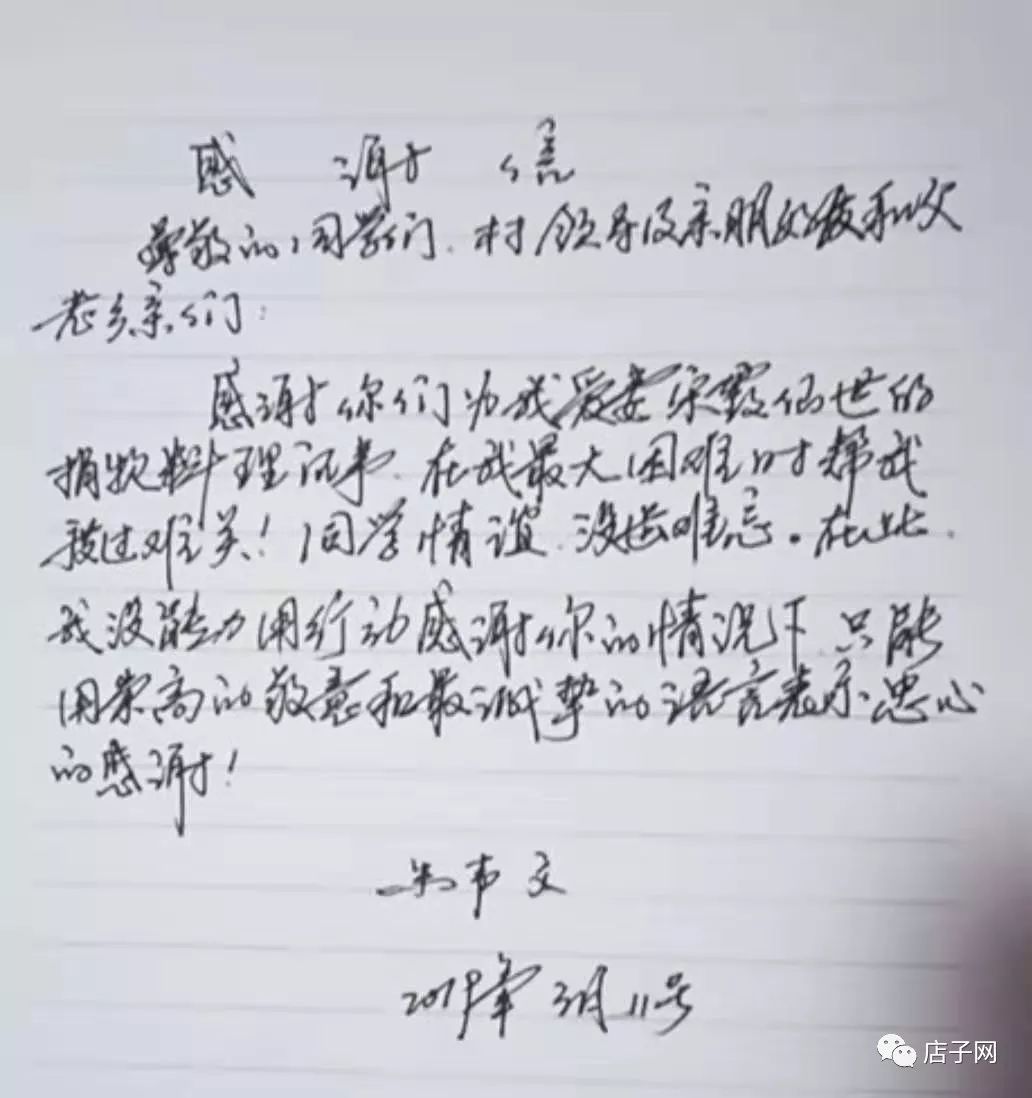 感谢信
尊敬的同学们、村领导及亲朋好友和父
老乡亲们:
感谢你们为我爱妻宋 仙世的
捐款料理后事、在我最大困难时帮我
渡过难关!同学情谊、没齿难忘。在此、
我没能力用行动感谢你的情况下、只能
用崇高的敬意和最诚挚的语言表示忠心
的感谢!
朱 文
2019年3月11号
店子网